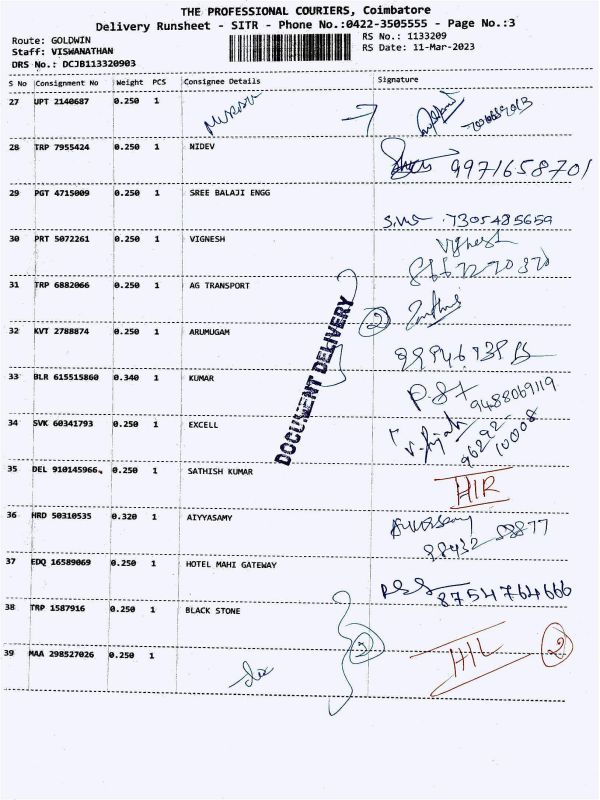 THE PROFESSIONAL COURIERS, Coimbatore
Delivery Runsheet - SITR - Phone No.:0422-3505555 - Page No.:3
Route: GOLDWIN
RS No.: 1133209
Staff: VISWANATHAN
RS Date: 11-Mar-2023
DRS No.: DCJB113320903
S No Consignment No Weight PCS Consignee Details Signature
27 UPT 2140687 0.250 1
28 TRP 7955424 0.250 1 NIDEV
9971658701
29 PGT 4715009 0.250 1 SREE BALAJI ENGG
7305485659
30 PRT 5072261 0.250 1 VIGNESH
Vignesh
31 TRP 6882066 0.250 1 AG TRANSPORT
DOCUMENT DELIVERY
2
32 KVT 2788874 0.250 1 ARUMUGAM
33 BLR 615515860 0.340 1 KUMAR
9488069119
34 SVK 60341793 0.250 1 EXCELL
96292
10008
35 DEL 910145966 0.250 1 SATHISH KUMAR
HIR
36 HRD 50310535 0.320 1 AIYYASAMY
37 EDQ 16589069 0.250 1 HOTEL MAHI GATEWAY
8754764666
38 TRP 1587916 0.250 1 BLACK STONE
2
HIL
2
39 MAA 298527026 0.250 1